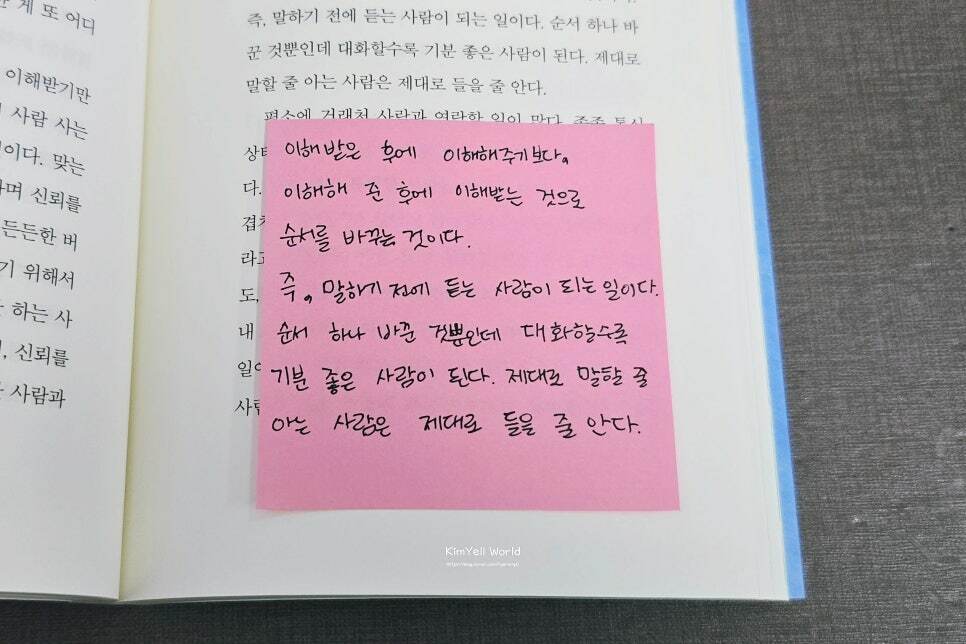 게 또 어디
이해받기만
사람 사는
이다. 맞는
며 신뢰를
든든한 버
기 위해서
하는 사
신뢰를
사람과
즉, 말하기 전에 듣는 사람이 되는 일이다. 순서 하나 바
꾼 것뿐인데 대화할수록 기분 좋은 사람이 된다. 제대로
말할 줄 아는 사람은 제대로 들을 줄 안다.
평소에 거래처 사람과 연락할 일이 많다.
다.
라고
도,
내
이해받은 후에 이해해주기보다,
이해해 준 후에 이해받는 것으로
순서를 바꾸는 것이다.
즉, 말하기 전에 듣는 사람이 되는 일이다.
순서 하나 바꾼 것뿐인데 대화할수록
기분 좋은 사람이 된다. 제대로 말할 줄
아는 사람은 제대로 들을 줄 안다.
KimYell World